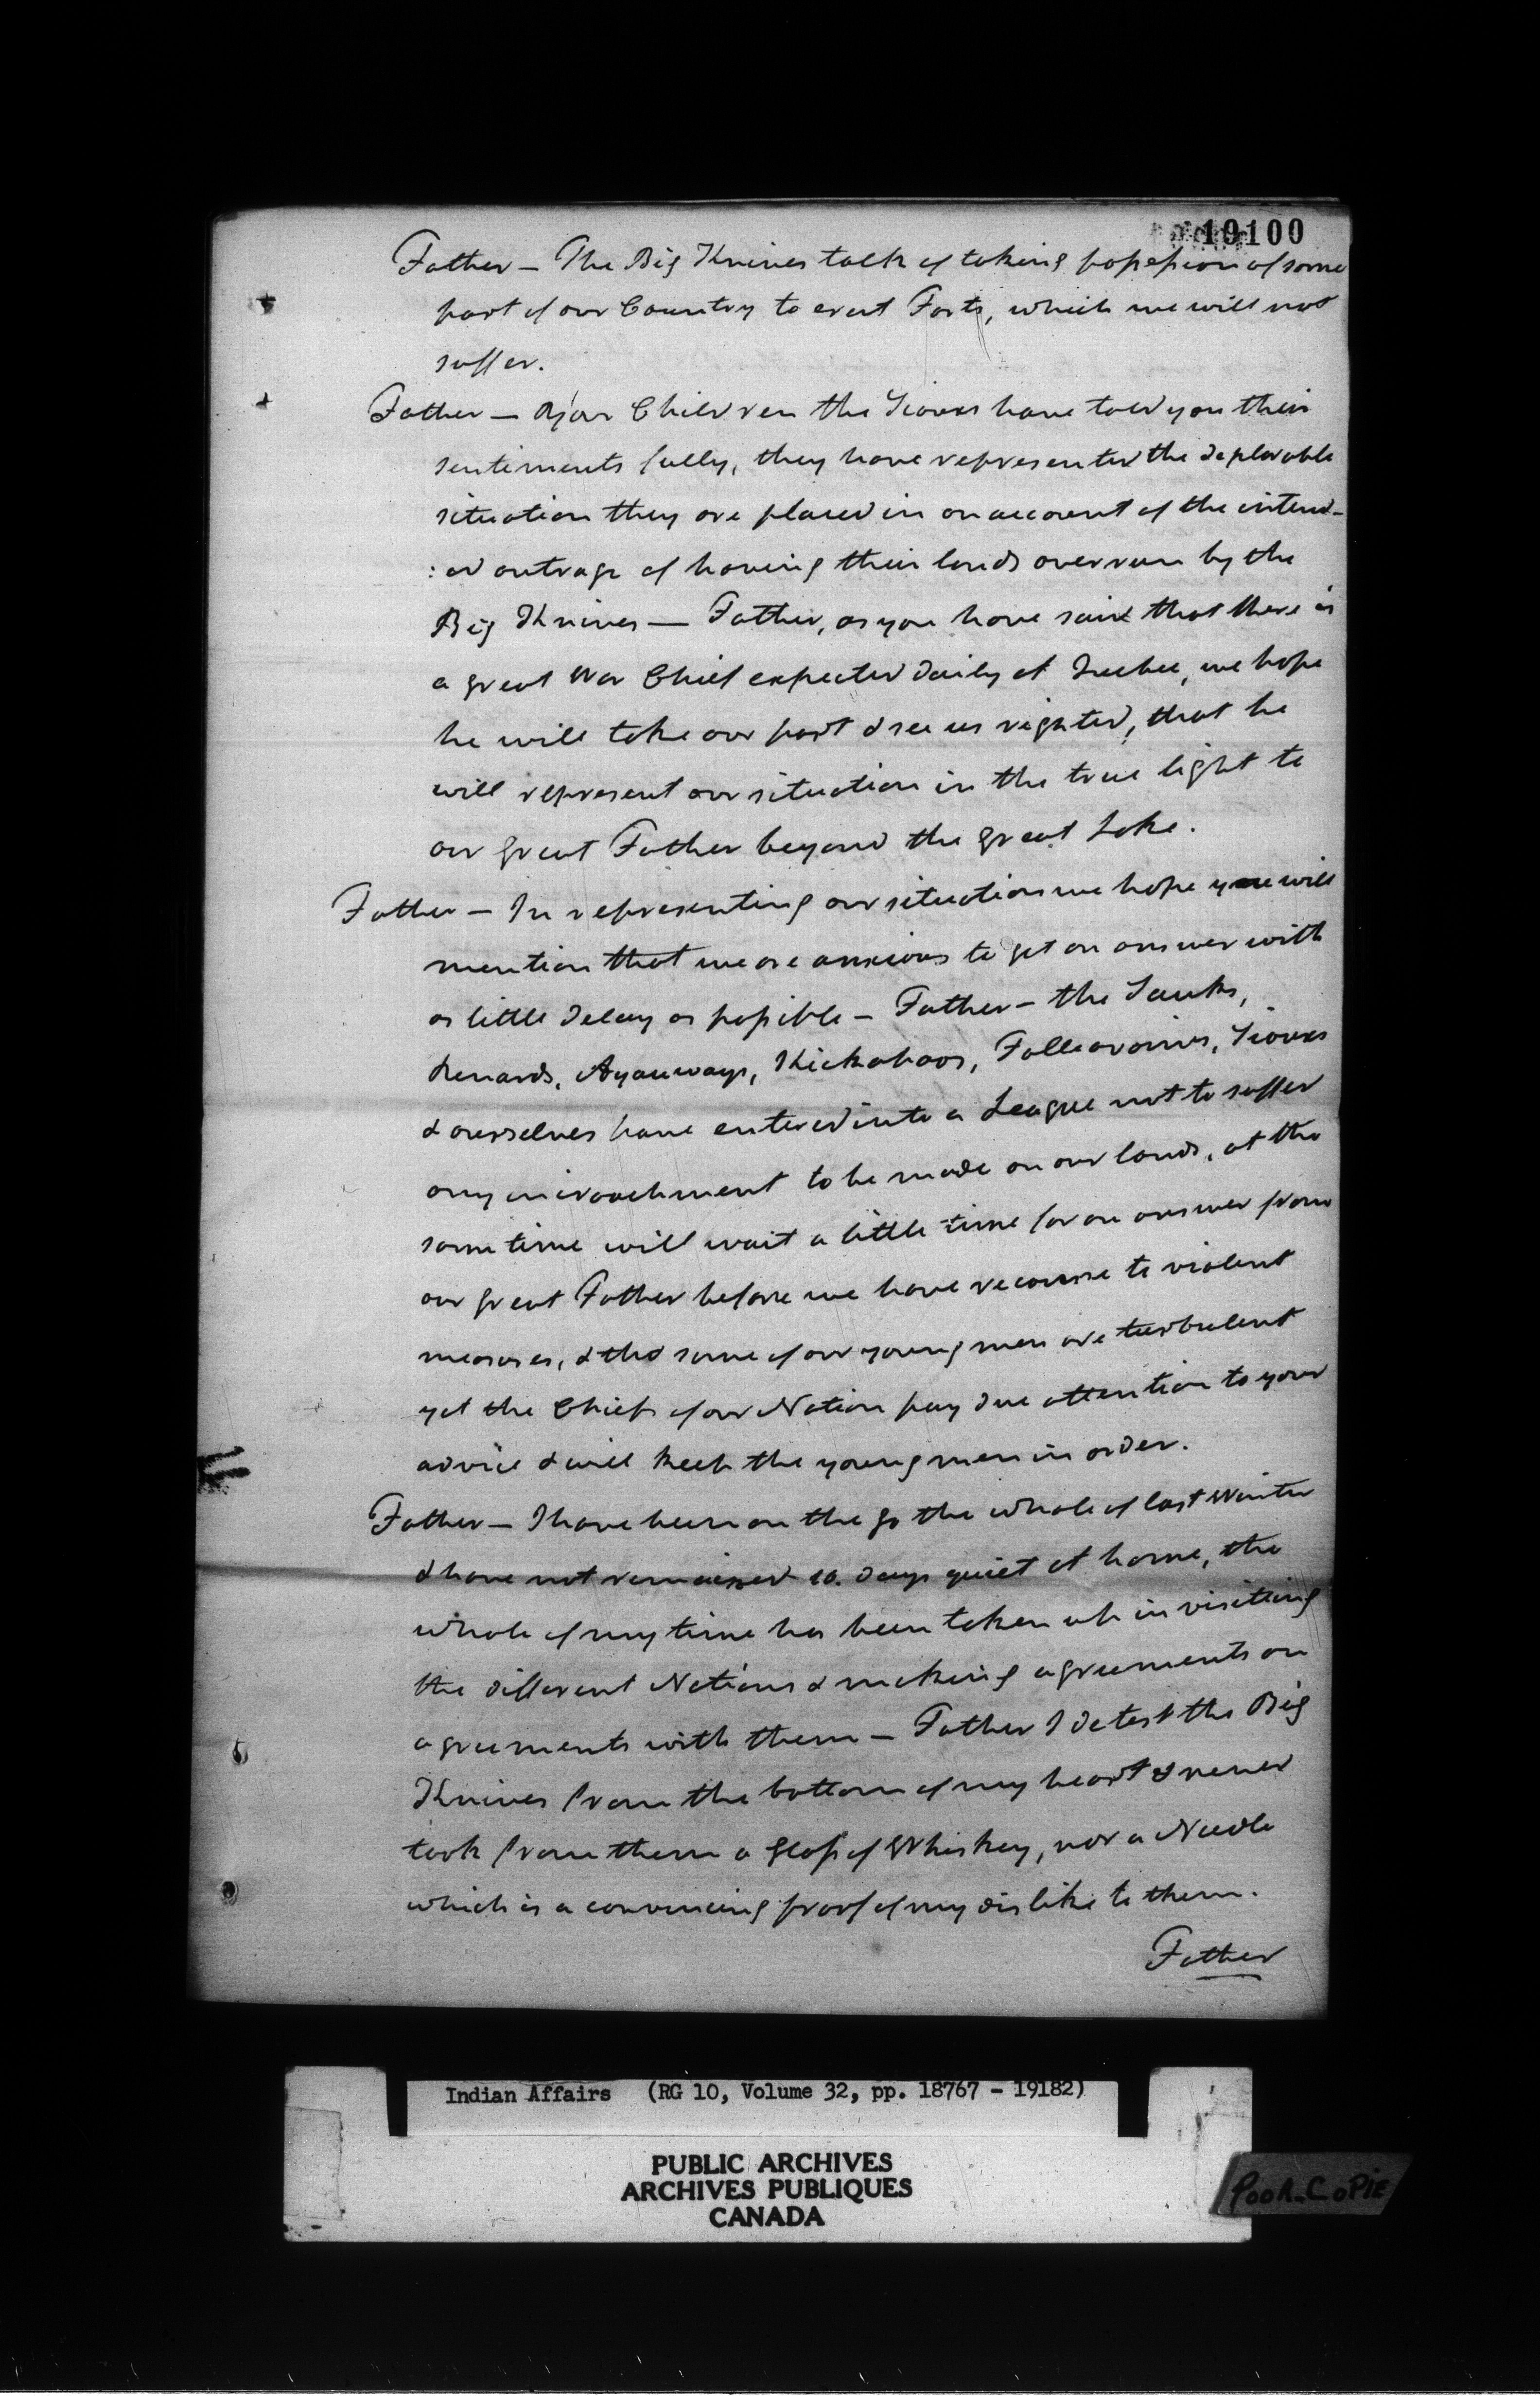 19100
Father — The Big Knives talk of taking possession of some
part of our Country to erect Forts, which we will not
suffer.
Father — Your Children the Sioux have told you their
sentiments fully, they have represented the deplorable
situation they are placed in on account of the intend-
:ed outrage of having their lands overrun by the
Big Knives — Father, as you have said that there is
a great War Chief expected daily at Quebec, we hope
he will take our part & see us righted, that he
will represent our situation in the true light to
our great Father beyond the great Lake.
Father — In representing our situation we hope you will
mention that we are anxious to get an answer with
as little delay as possible — Father — the Sauks,
Renards, Ayauways, Kickapoos, Folleavoines, Sioux
& ourselves have entered into a League not to suffer
any incroachment to be made on our lands, at the
same time will wait a little time for an answer from
our great Father before we have recourse to violent
measures, & tho some of our young men are turbulent
yet the Chiefs of our Nation pay due attention to your
advice & will keep the young men in order.
Father — I have been on the go the whole of last Winter
& have not remained 10. days quiet at home, the
whole of my time has been taken up in visiting
the different Nations & making agreements on
agreements with them — Father I detest the Big
Knives from the bottom of my heart & never
took from them a glass of Whiskey, nor a Needle
which is a convincing proof of my dislike to them.
Father
Indian Affairs (RG 10, Volume 32, pp. 18767 - 19182)
PUBLIC ARCHIVES
ARCHIVES PUBLIQUES
CANADA
POOR COPIE